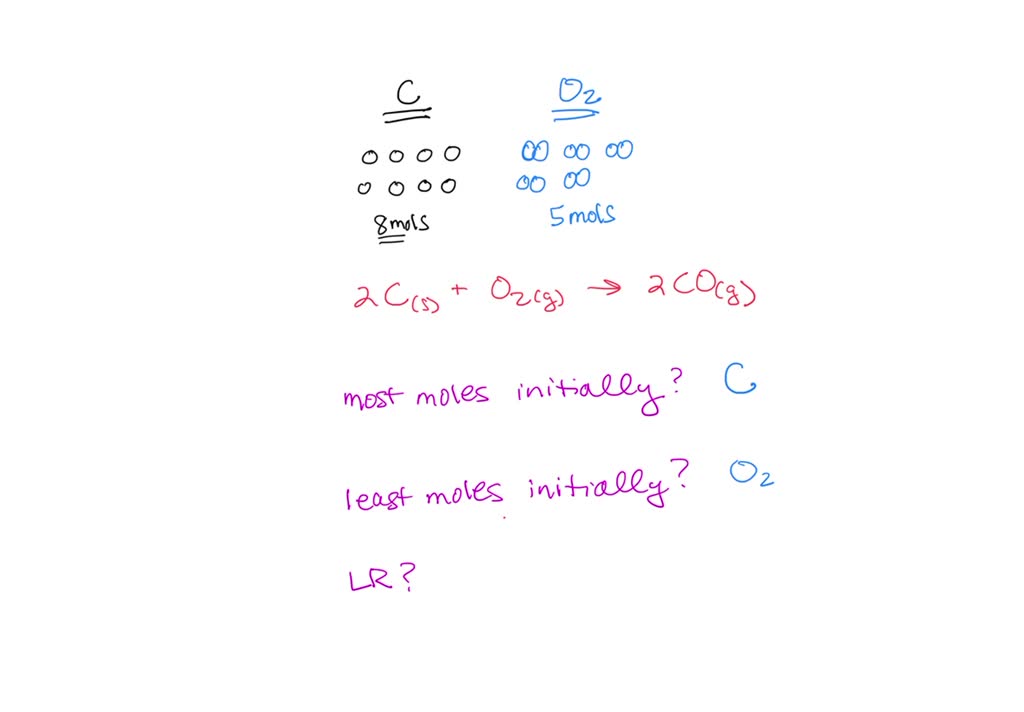 C O₂
8mols 5mols
2C(s) + O₂(g) → 2CO(g)
most moles initially? C
least moles initially? O₂
LR?